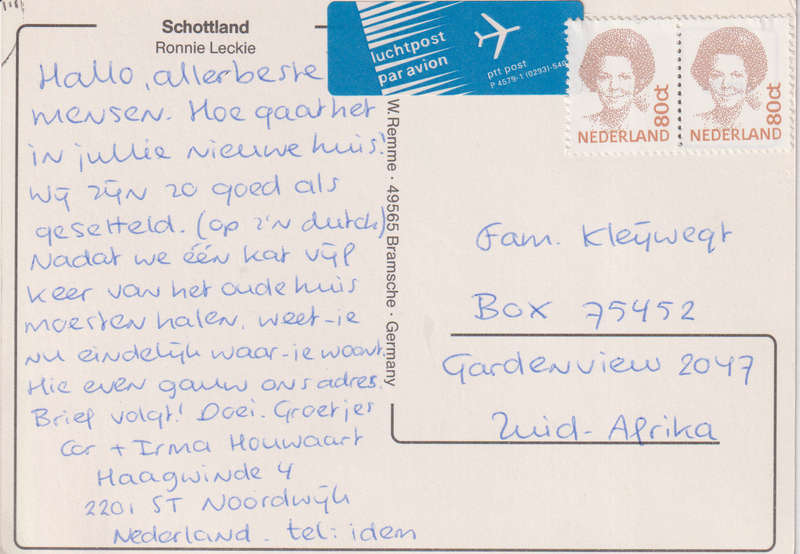 Schottland
Ronnie Leckie
Hallo, allerbeste
mensen. Hoe gaat het
in jullie nieuwe huis?
Wij zijn zo goed als
gesetteld. (op z'n dutch)
Nadat we één kat vijf
keer van het oude huis
moesten halen, weet-ie
nu eindelijk waar-ie woont.
Hie even gauw ons adres.
Brief volgt! Doei. Groetjes
Cor + Irma Houwaart
Haagwinde 4
2201 ST Noordwijk
Nederland. tel: idem
luchtpost
par avion
ptt post
P 4579-1 (0293)-540
NEDERLAND
80ct
NEDERLAND
80ct
W. Remme · 49565 Bramsche · Germany
Fam. Kleijwegt
Box 75452
Gardenview 2047
Zuid-Afrika